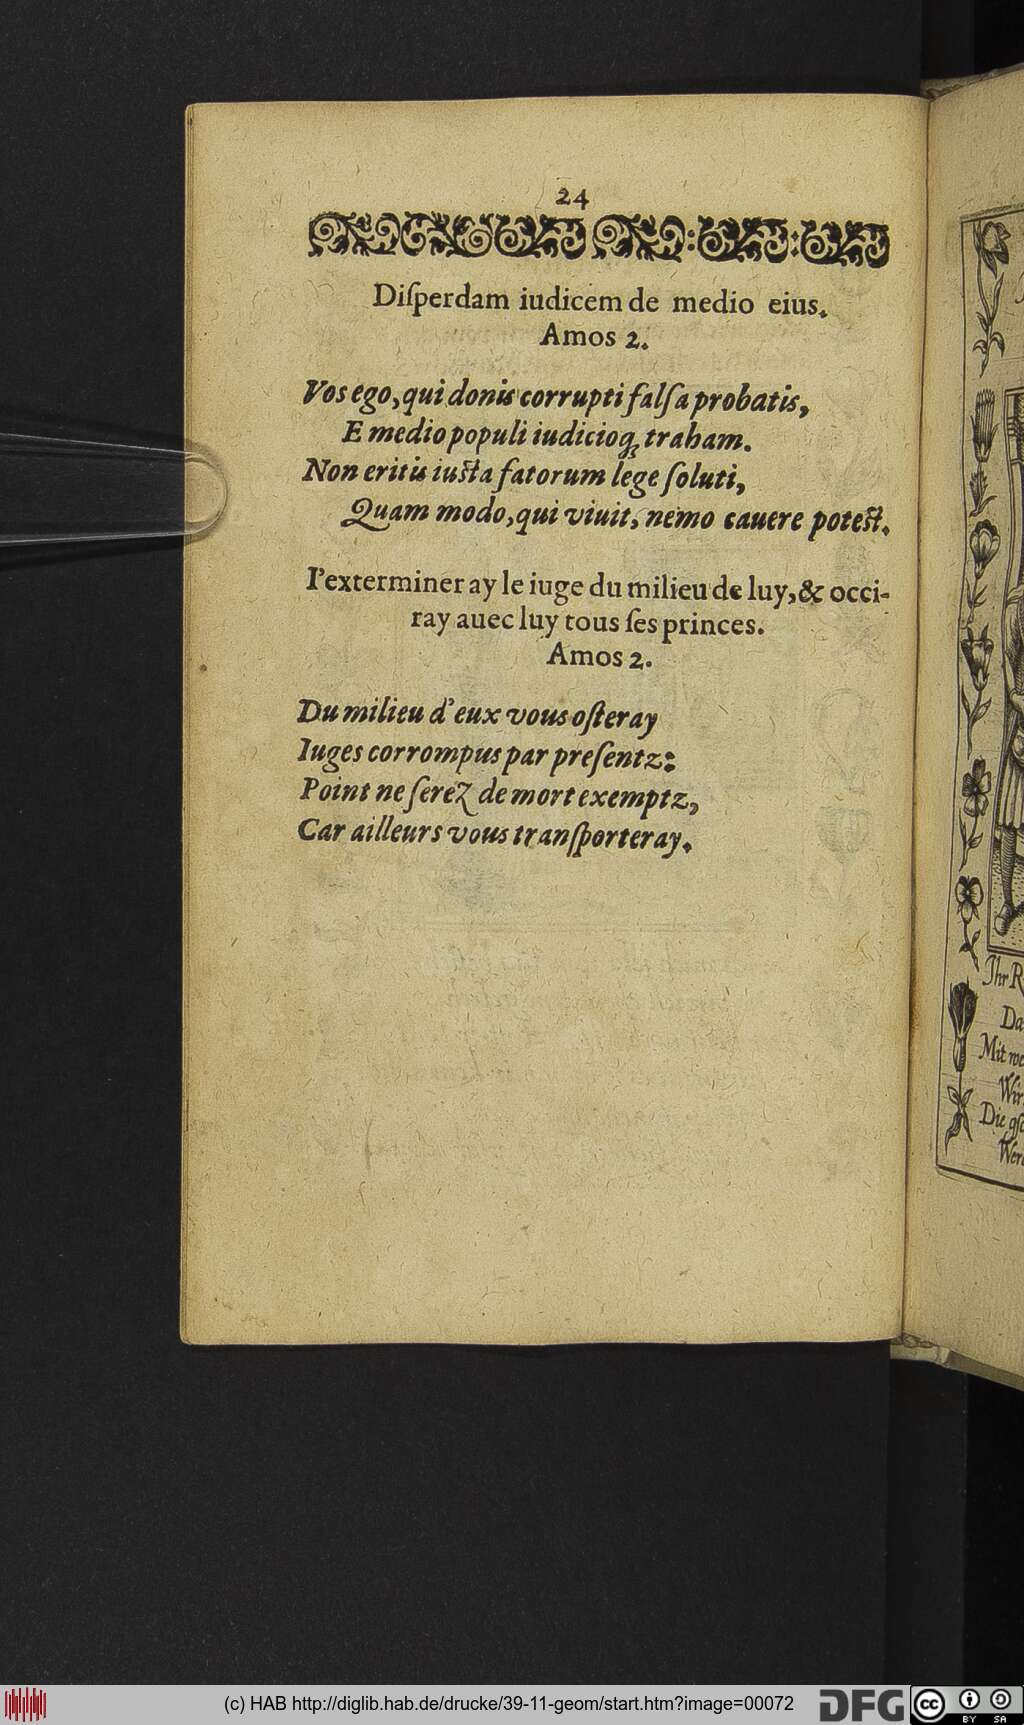 24
Diſperdam iudicem de medio eius.
Amos 2.
Vos ego, qui donis corrupti falſa probatis,
E medio populi iudicioq; traham.
Non eritis iusta fatorum lege ſoluti,
Quam modo, qui viuit, nemo cauere potest.
I'exterminer ay le iuge du milieu de luy, & occi-
ray auec luy tous ſes princes.
Amos 2.
Du milieu d'eux vous oſteray
Iuges corrompus par preſentz:
Point ne ſerez de mort exemptz,
Car ailleurs vous tranſporteray.
Ihr R
Da
Mit we
Wir
Die gſ
Wer
(c) HAB http://diglib.hab.de/drucke/39-11-geom/start.htm?image=00072
DFG
cc
BY SA